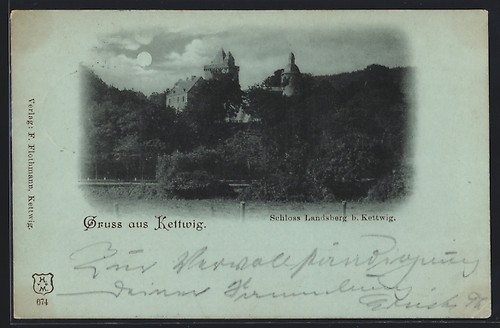 Verlag: F. Flothmann, Kettwig.
Gruss aus Kettwig.
Schloss Landsberg b. Kettwig.
Zur Vervollständigung
deiner Sammlung
HKM
674